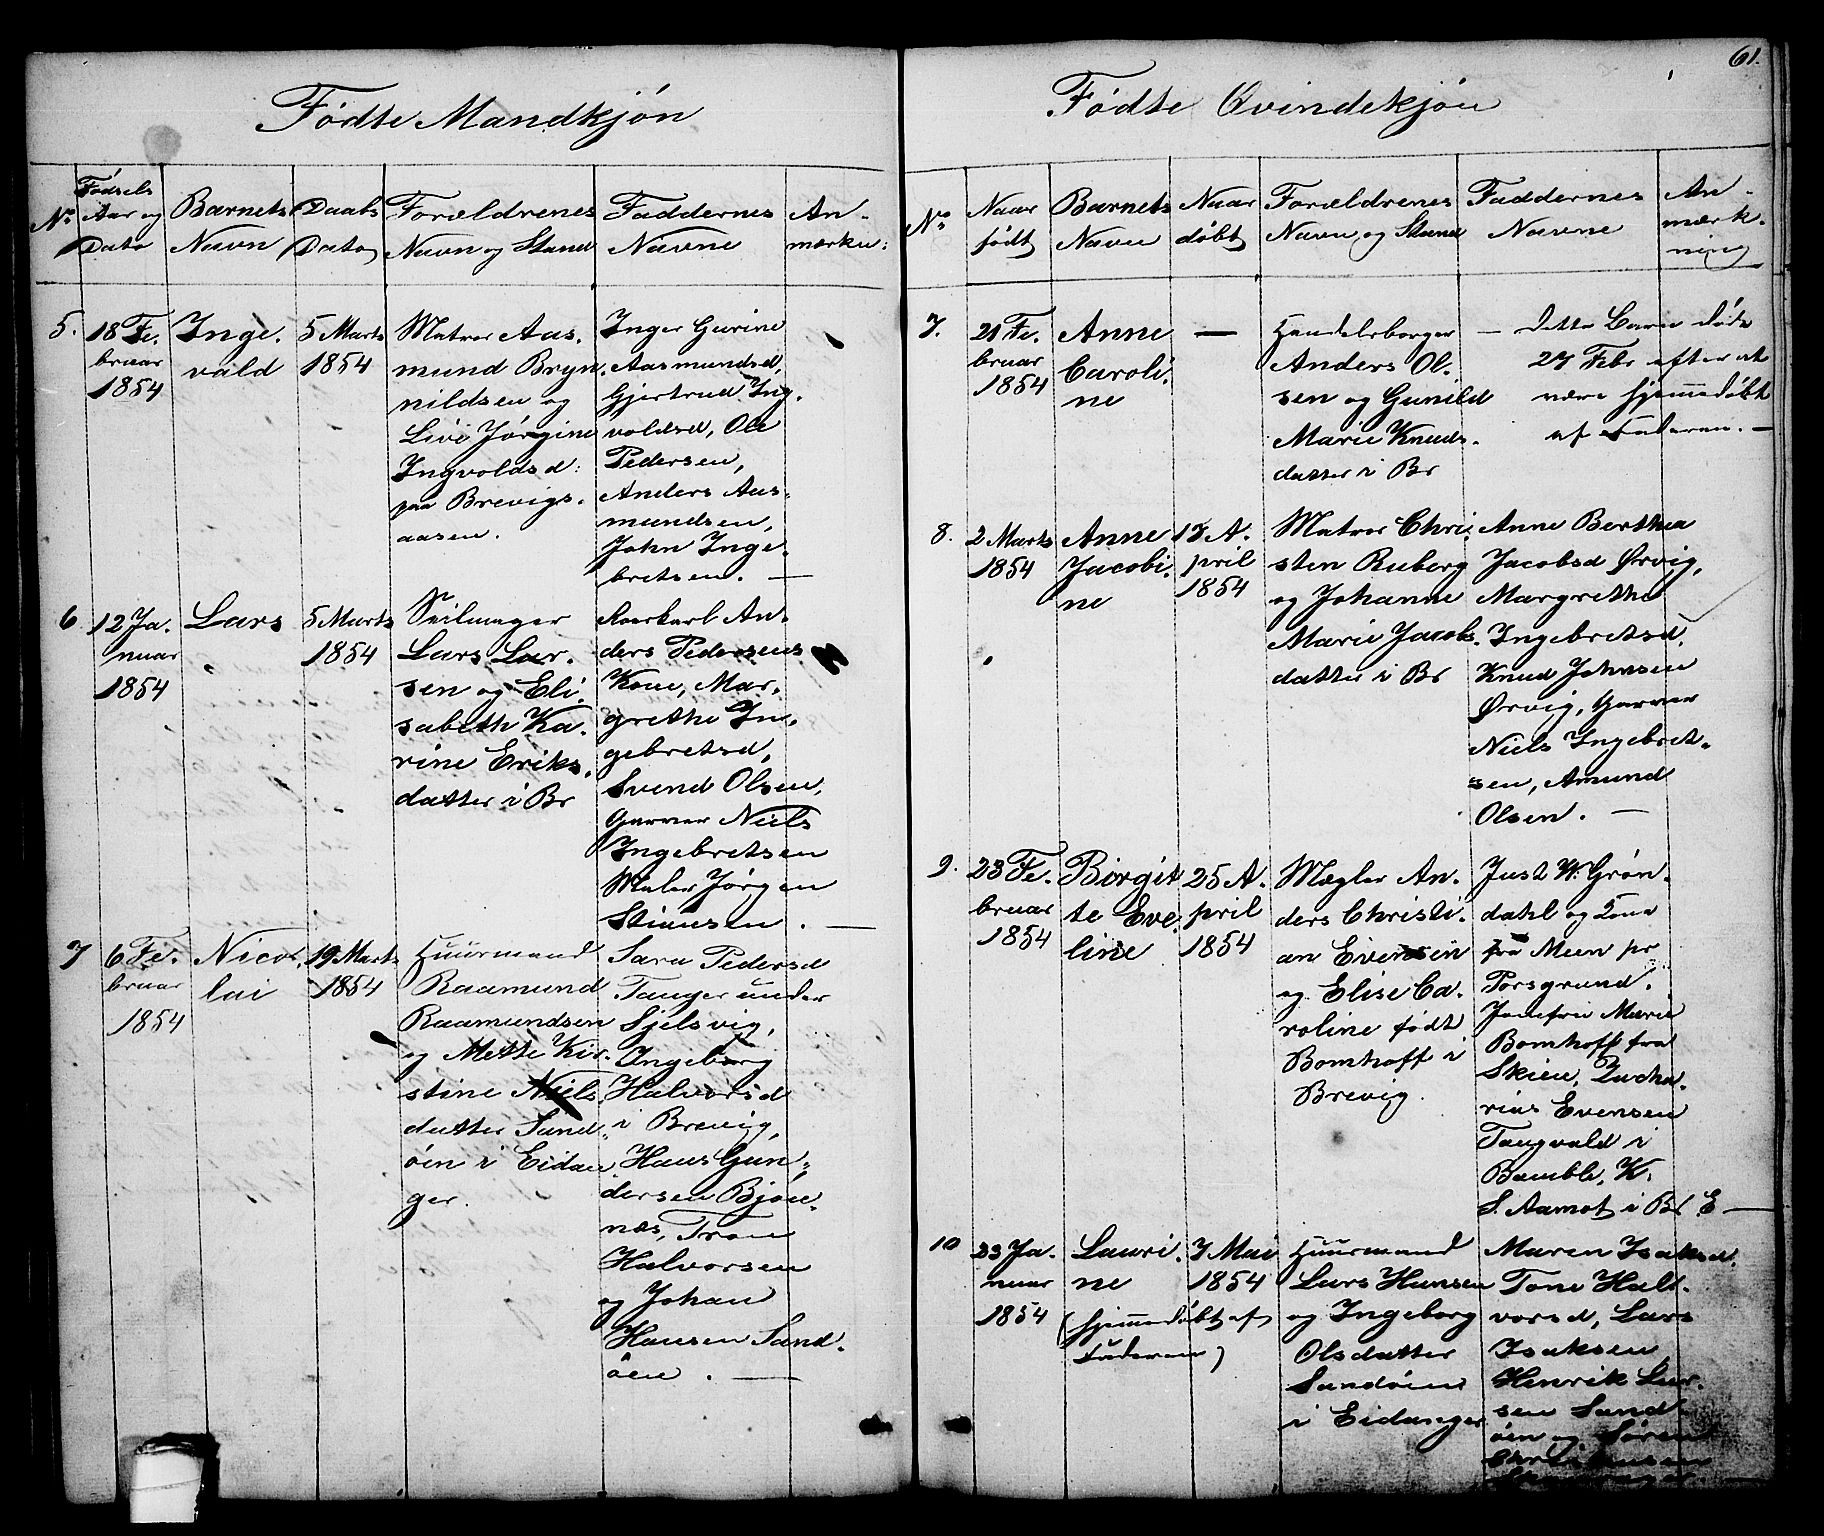 61.
Fødte Mandkjøn
No
Fødsels Aar og Dato
Barnets Navn
Daabs Dato
Forældrenes Navn og Stand
Faddernes Navne
Anmærkn:
5.
18 Fe.
bruar
1854
Inge.
vald
5 Marts
1854
Matros Aas.
mund Bryn.
nildsen og
Live Jørgine
Ingvoldsd:
paa Brevigs.
aasen.
Inger Gurine
Aasmundsd,
Gjertrud Ing.
voldsd, Ole
Pedersen,
Anders Aas.
mundsen,
John Inge.
bretsen. —
6
12 Ja.
nuar
1854
Lars
5 Marts
1854
Seilmager
Lars Lar.
sen og Eli.
sabeth Ka.
rine Eriks.
datter i Br
Roerkarl An.
ders Pedersens
Kone, Mar.
grethe In.
gebretsd,
Svend Olsen,
Garver Niels
Ingebretsen
Maler Jørgen
Stiansen. —
7
6 Fe.
bruar
1854
Nico.
lai
19 Marts
1854
Huusmand
Raamund
Raamundsen
og Mette Kir.
stine Niels
datter Sand.
øen i Eidan
ger.
Sara Pedersd
Tanger under
Sjelsvig,
Ingeborg
Halvorsd
i Brevig,
Hans Gun.
dersen Bjøn.
næs, Tron
Halvorsen
og Johan
Hansen Sand.
øen. —
Fødte Qvindekjøn
No
Naar født
Barnets Navn
Naar døbt
Forældrenes Navn og Stand
Faddernes Navne
Anmærkning
7.
21 Fe.
bruar
1854
Anne
Caroli.
ne
—
Handelsborger
Anders Ol.
sen og Gunild
Marie Knuds.
datter i Br
— Dette Barn døde
27 Febr efter at
være hjemmedøbt
af Faderen. —
8.
2 Marts
1854
Anne
Jacobi.
ne
17 A.
pril
1854
Matros Chri.
sten Ruberg
og Johanne
Marie Jacobs.
datter i Br
Anne Berthea
Jacobsd Ørvig,
Margrethe
Ingebretsd,
Knud Johnsen
Ørvig, Garver
Niels Ingebret.
sen, Amund
Olsen. —
9.
23 Fe.
bruar
1854
Birgit
te Eve.
line
25 A.
pril
1854
Mægler An.
ders Christi.
an Evensen
og Elise Ca.
roline født
Bomhoff i
Brevig.
Just W. Grøn.
dahl og Kone
fra Meen pr
Porsgrund.
Jomfru Marie
Bomhoff fra
Skien, Zacha.
rias Evensen
Tangvald i
Bamble, K.
S. Aamot i Br E —
10
23 Ja.
nuar
1854
Lauri.
ne
7 Mai
1854
(hjemmedøbt af
Faderen)
Huusmand
Lars Hansen
og Ingeborg
Olsdatter
Sandøen
i Eidanger
Maren Isaksd.
Tone Hal.
vorsd, Lars
Isaksen
Henrik Lar.
sen Sand.
øen og Søren
Christensen